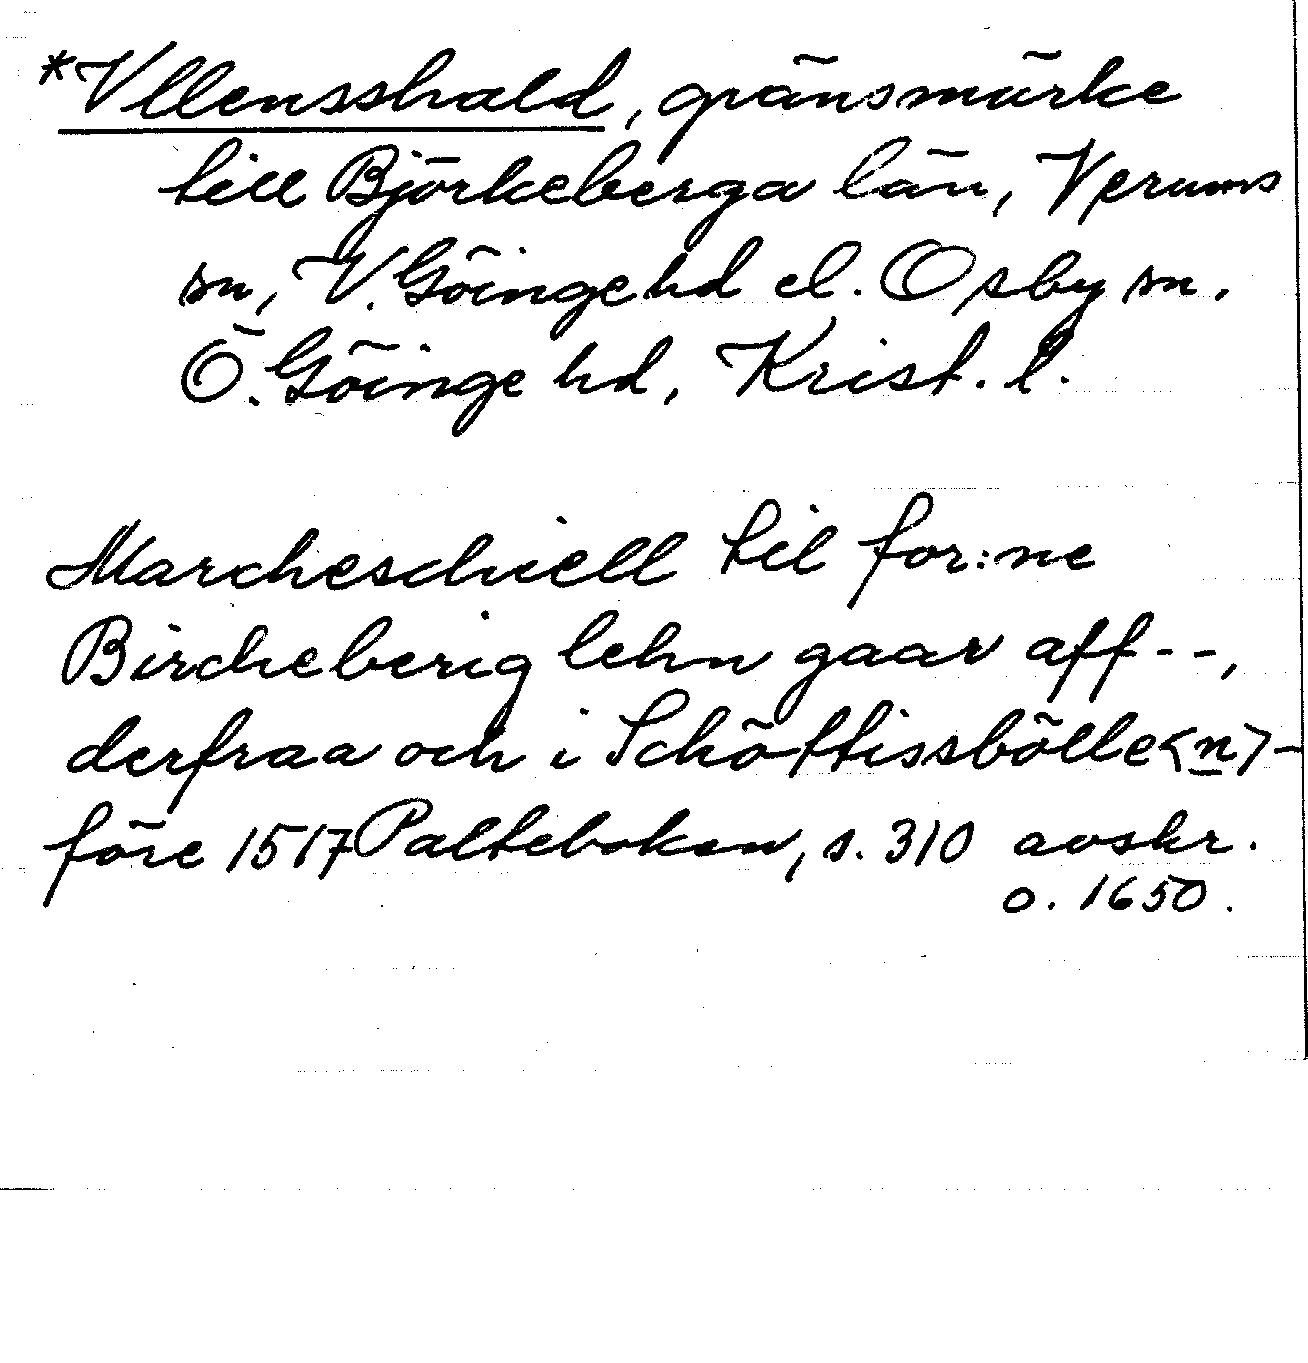 *Vllensshald, gränsmärke
till Björkeberga län, Verums
sn, V. Göinge hd el. Osby sn.
Ö. Göinge hd, Krist. l.
Marcheschiell til for:ne
Bircheberig lehn gaar aff--,
derfraa och i Schöttissbölle<n>-
före 1517 Palteboken, s. 310 avskr.
o. 1650.